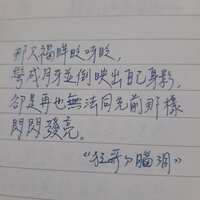 那又褐眸眨呀眨,
彎成月牙並倒映出自己身影,
卻是再也無法同先前那樣
閃閃發亮。
“狂哥的腦洞”